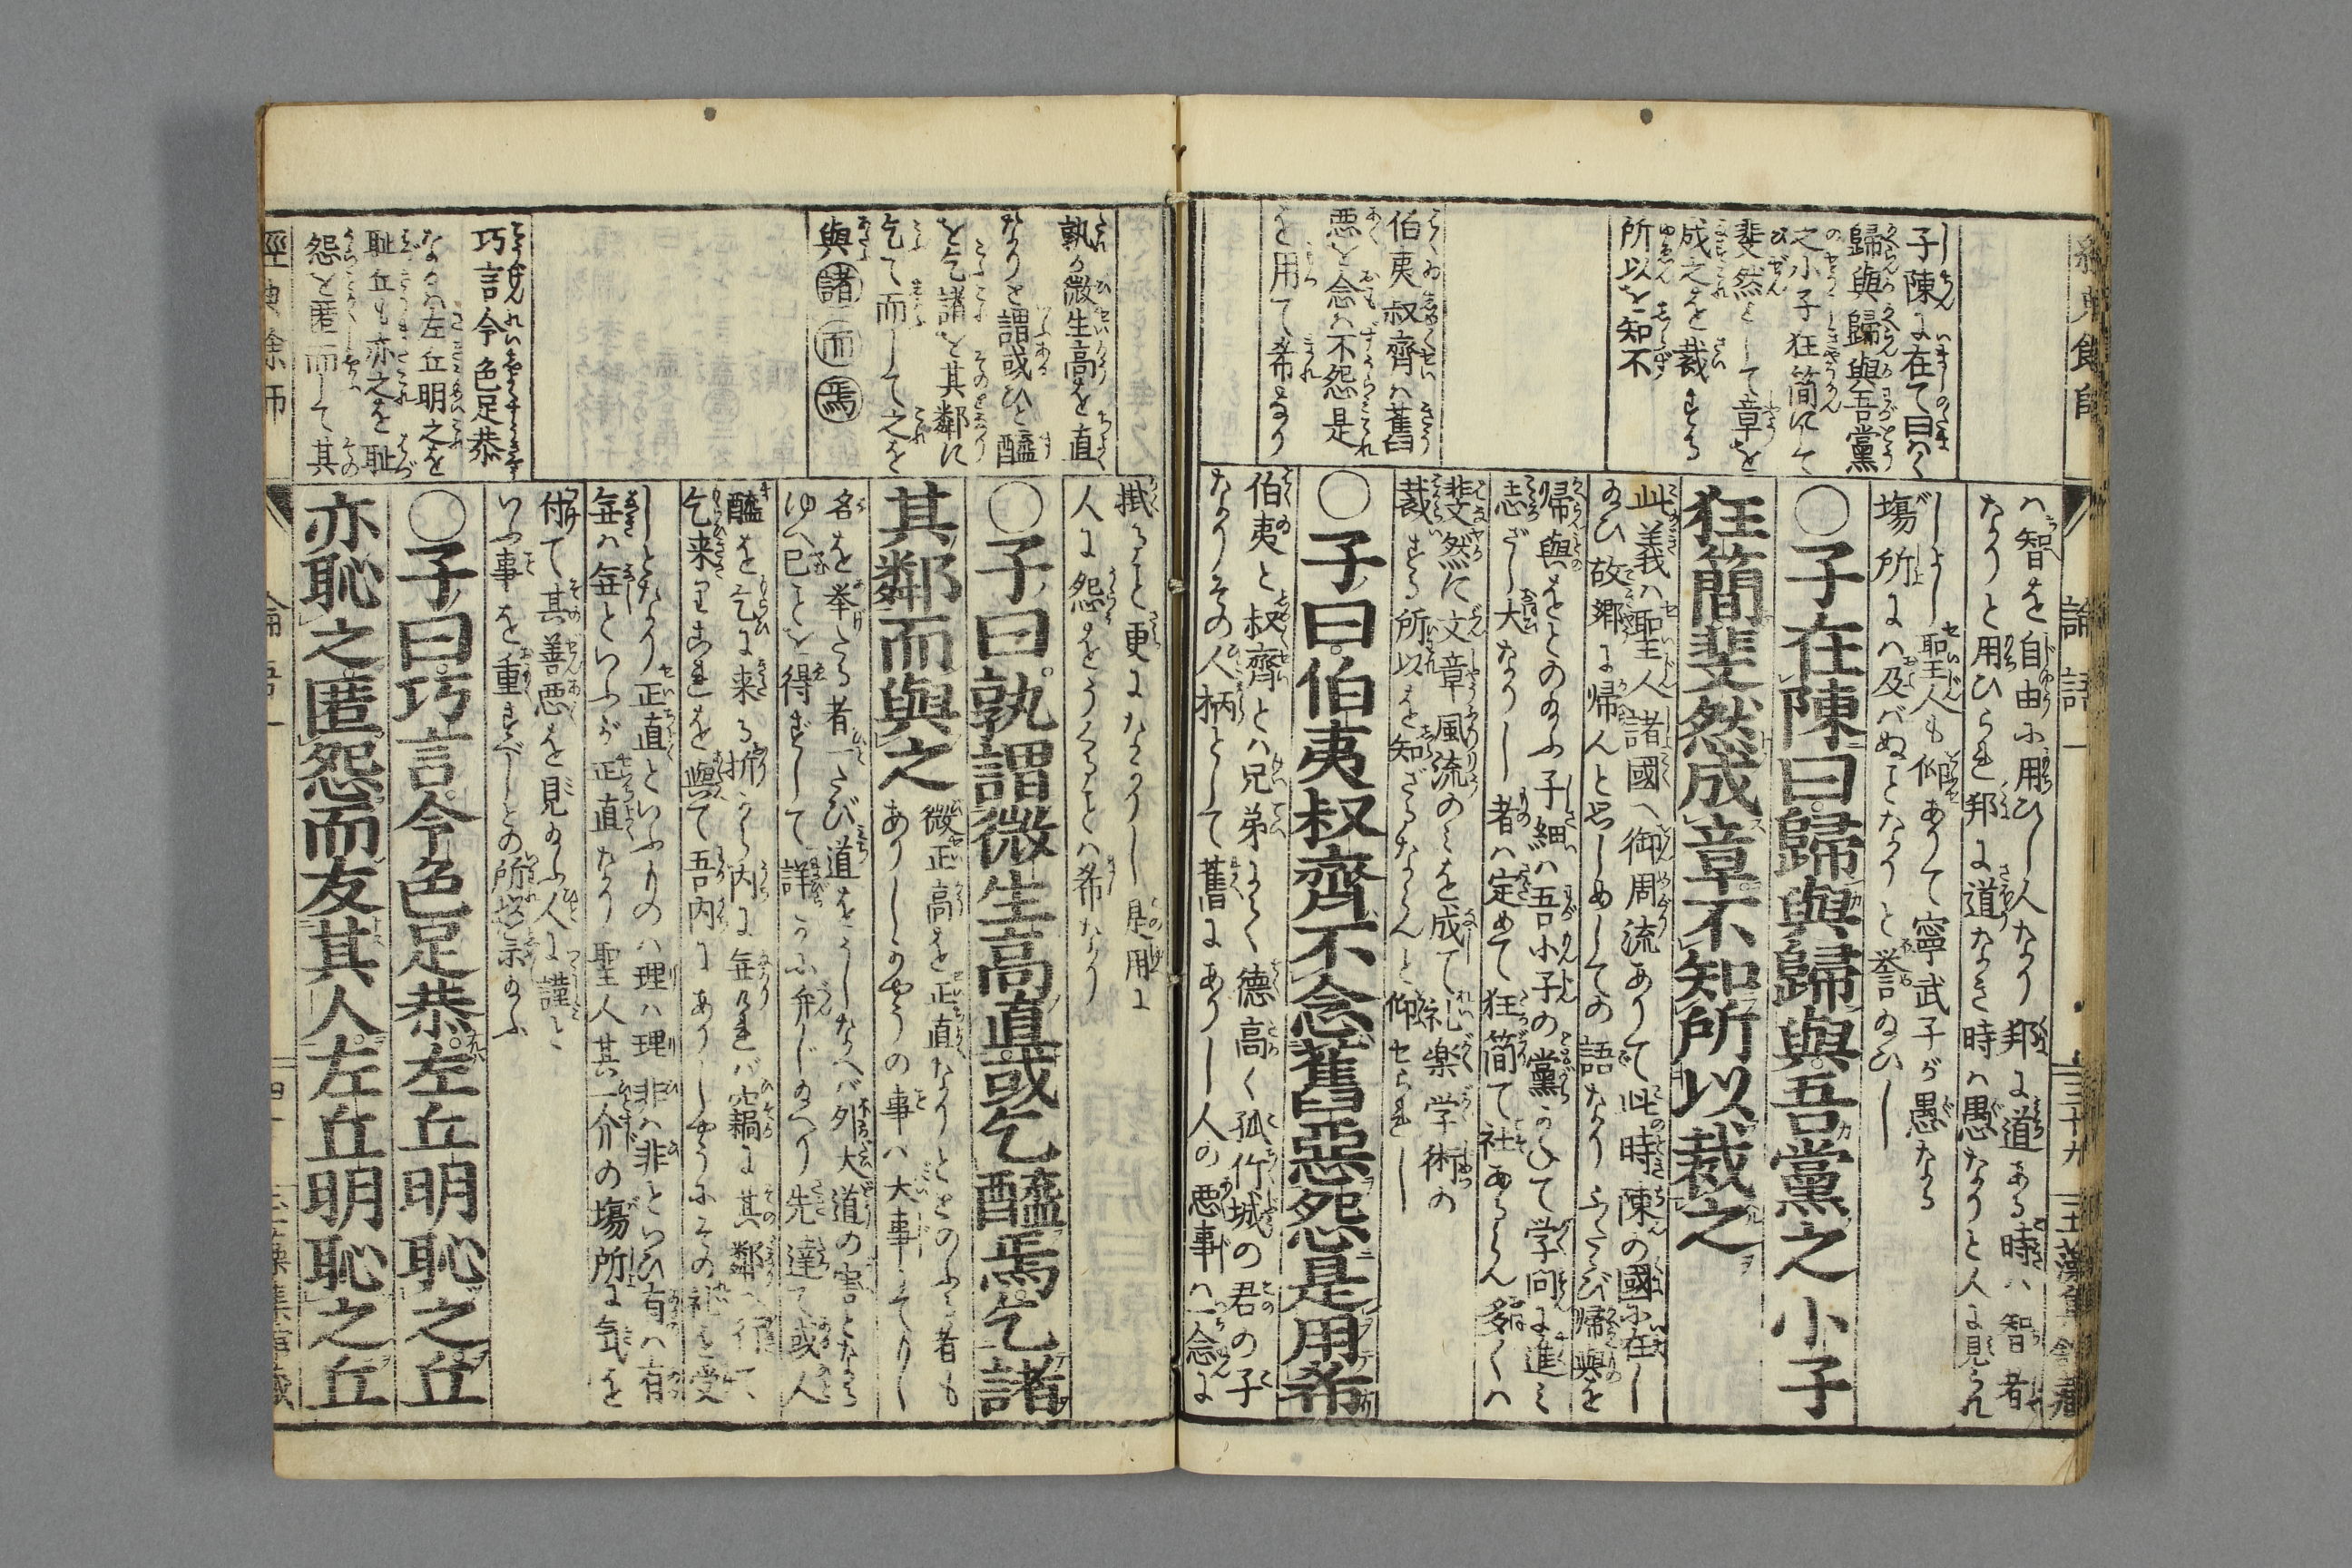 論語一
三十九
子陳に在て曰はく
歸與歸與吾黨
之小子狂簡にして
斐然として章を
成之を裁する
所以を知不
伯夷叔齊ハ舊
悪を念ハ不怨是
を用て希なり
ハ智を自由に用ひし人なり邦に道ある時ハ智者
なりと用ひられ邦に道なき時ハ愚なりと人に見られ
しよし聖人も仰ありて寧武子が愚なる
場所にハ及バぬことなりと誉給ひし
○子在陳曰歸與歸與吾黨之小子
狂簡斐然成章不知所以裁之
此義ハ聖人諸國へ御周流ありて此時陳の國に在し
給ひ故郷に帰んと思しめしての語なりふたゝび帰與を
帰與をとのたまふ子細ハ吾小子の黨かねて学問に進ミ
志ざし大なりし者ハ定めて狂簡て社あらん多くハ
斐然に文章風流のミを成て礼楽学術の
裁する所以を知ざるならんと仰せられし
○子曰伯夷叔齊不念舊惡怨是用希
伯夷と叔齊とハ兄弟にて德高く孤竹城の君の子
なりその人柄として舊にありし人の悪事ハ一念に
孰か微生高を直
なりと謂或ひと醯
を乞諸を其鄰に
乞て而して之を
與 諸 而 焉
巧言令色足恭
なるハ左丘明之を
耻丘も亦之を耻
怨を匿而して其
掛ること更になかりし是用に
人に怨をうくることハ希なり
○子曰孰謂微生高直或乞醯焉乞諸
其鄰而與之
微正高を正直なりととのふる者も
ありしかやうの事ハ大事にてりし
名を挙たる者一たび道をうしなへバ外大道の害となる
ゆへ已ことを得ずして詳かに弁じ給へり先達て或人
醯を乞に来る折から内に無れバ竊に其鄰へ行て
乞来りこれを與て吾内にありしやうにその礼を受
しとなり正直といふものハ理ハ理非ハ非といひ有ハ有
無ハ無といふが正直なり聖人其一介の場所に気を
付て其善悪を見給ふ人に謹こと
いふ事を重すべしとの所也宗給ふ
○子曰巧言令色足恭左丘明恥之丘
亦恥之匿怨而友其人左丘明恥之丘